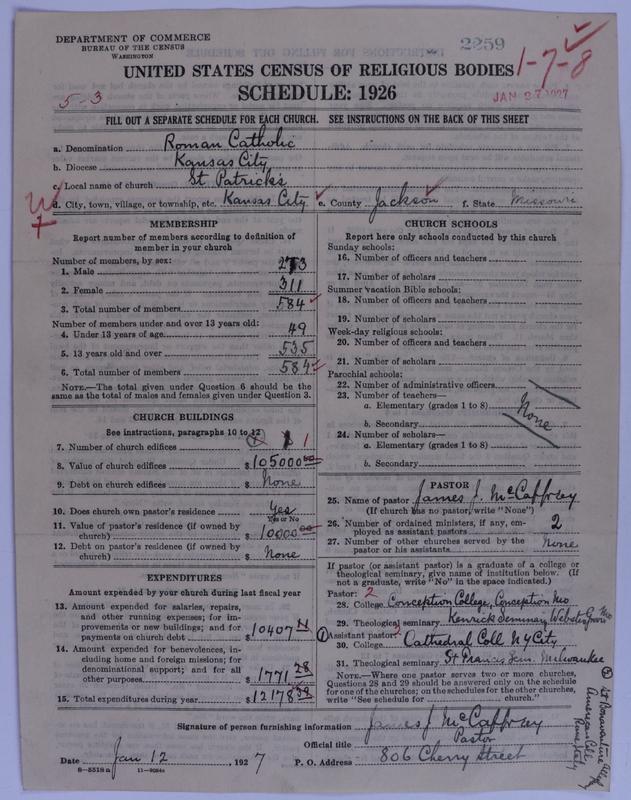 DEPARTMENT OF COMMERCE
BUREAU OF THE CENSUS
WASHINGTON
2259
1-7-8
UNITED STATES CENSUS OF RELIGIOUS BODIES
SCHEDULE: 1926
5-3
JAN 27 1927
FILL OUT A SEPARATE SCHEDULE FOR EACH CHURCH. SEE INSTRUCTIONS ON THE BACK OF THIS SHEET
a. Denomination Roman Catholic
b. Diocese Kansas City
c. Local name of church St Patrick's
d. City, town, village, or township, etc. Kansas City e. County Jackson f. State Missouri
MEMBERSHIP
Report number of members according to definition of
member in your church
Number of members, by sex:
1. Male 273
2. Female 311
3. Total number of members 584
Number of members under and over 13 years old:
4. Under 13 years of age 49
5. 13 years old and over 535
6. Total number of members 584
NOTE.—The total given under Question 6 should be the
same as the total of males and females given under Question 3.
CHURCH BUILDINGS
See instructions, paragraphs 10 to 12
7. Number of church edifices 1
8. Value of church edifices $105000 00
9. Debt on church edifices $ None
10. Does church own pastor's residence Yes
Yes or No
11. Value of pastor's residence (if owned by
church) $ 10000 00
12. Debt on pastor's residence (if owned by
church) $ None
EXPENDITURES
Amount expended by your church during last fiscal year
13. Amount expended for salaries, repairs,
and other running expenses; for im-
provements or new buildings; and for
payments on church debt $ 10407
14. Amount expended for benevolences, in-
cluding home and foreign missions; for
denominational support; and for all
other purposes $ 1771 28
15. Total expenditures during year $ 12178
CHURCH SCHOOLS
Report here only schools conducted by this church
Sunday schools:
16. Number of officers and teachers
17. Number of scholars
Summer vacation Bible schools:
18. Number of officers and teachers
19. Number of scholars
Week-day religious schools:
20. Number of officers and teachers
21. Number of scholars
Parochial schools:
22. Number of administrative officers
23. Number of teachers—
a. Elementary (grades 1 to 8)
None
b. Secondary
24. Number of scholars—
a. Elementary (grades 1 to 8)
b. Secondary
PASTOR
25. Name of pastor James J. McCaffrey
(If church has no pastor, write "None")
26. Number of ordained ministers, if any, em-
ployed as assistant pastors 2
27. Number of other churches served by the
pastor or his assistants None
If pastor (or assistant pastor) is a graduate of a college or
theological seminary, give name of institution below. (If
not a graduate, write "No" in the space indicated.)
Pastor: 2
28. College Conception College, Conception Mo
29. Theological seminary Kenrick Seminary Webster Groves Mo
① Assistant pastor: 2
30. College Cathedral Coll. N Y City
31. Theological seminary St Francis Sem. Milwaukee
NOTE.—Where one pastor serves two or more churches,
Questions 28 and 29 should be answered only on the schedule
for one of the churches; on the schedules for the other churches,
write "See schedule for church."
② St Bonaventure
American Coll.
Rome, Italy
Signature of person furnishing information James J McCaffrey
Official title Pastor
Date Jan 12, 1927 P. O. Address 806 Cherry Street
8—5518a 11—9084a